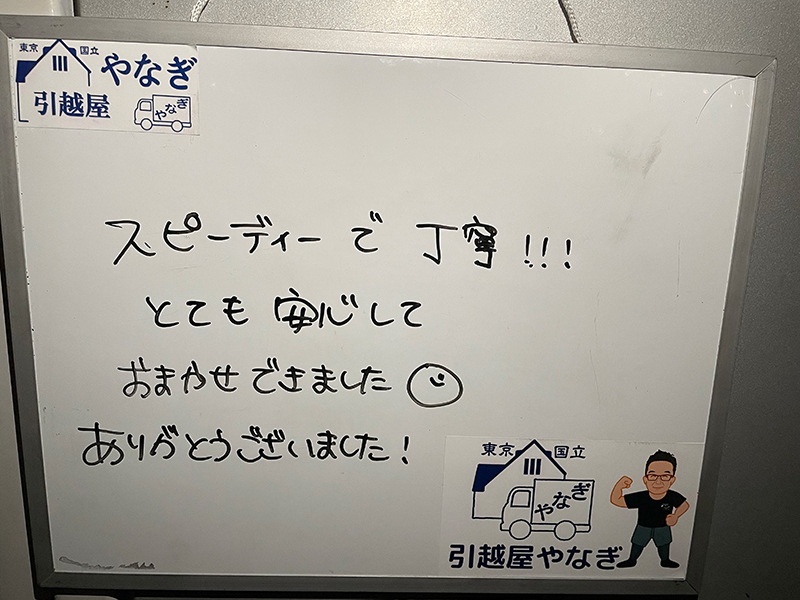 東京 国立
やなぎ
引越屋
やなぎ
スピーディーで 丁寧!!!
とても 安心して
おまかせできました
ありがとうございました!
東京 国立
やなぎ
引越屋やなぎ